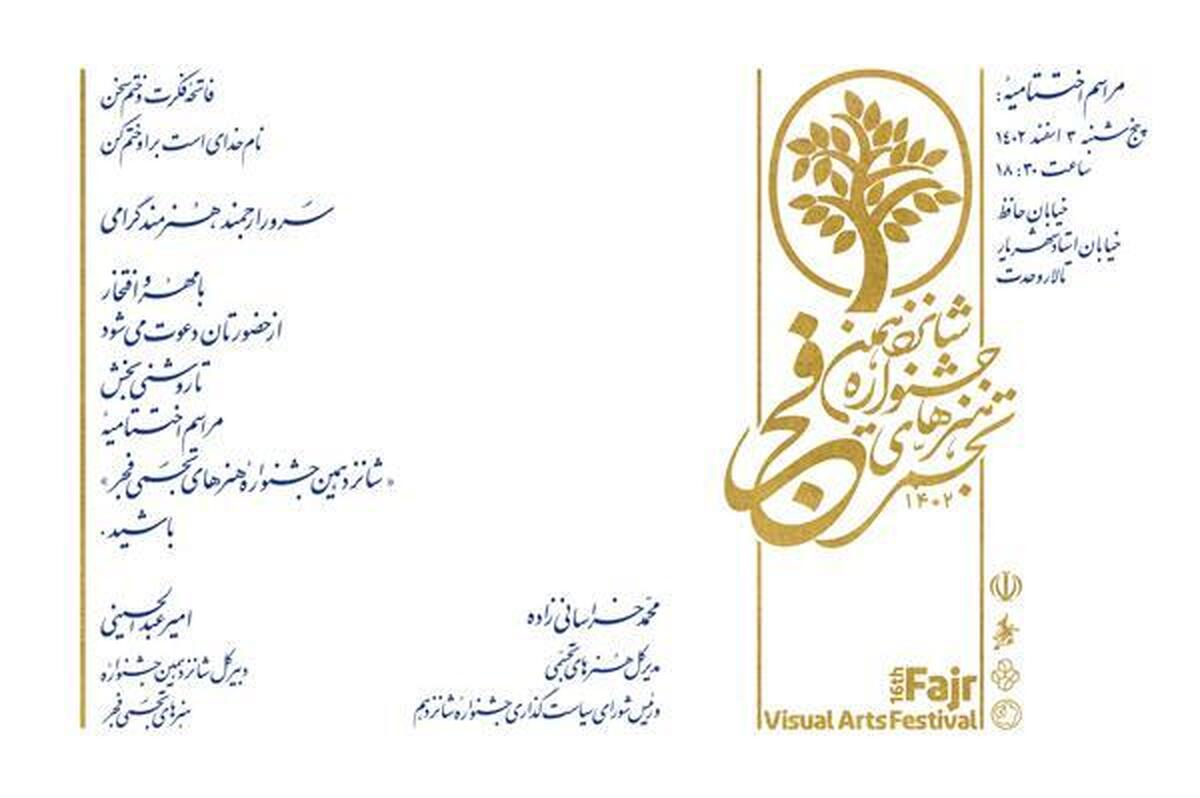 مراسم اختتامیهٔ:
پنج‌شنبه ۳ اسفند ۱۴۰۲
ساعت ۱۸:۳۰
خیابان حافظ
خیابان استاد شهریار
تالار وحدت
شانزدهمین
جشنواره
هنرهای
تجسمی
فجر
۱۴۰۲
16th Fajr
Visual Arts Festival
فاتحهٔ فکرت و ختم سخن
نام خدای است بر او ختم کن
سرور ارجمند، هنرمند گرامی
با مهر و افتخار
از حضورتان دعوت می‌شود
تا روشنی بخش
مراسم اختتامیهٔ
«شانزدهمین جشنوارهٔ هنرهای تجسمی فجر»
باشید.
محمد خراسانی زاده
مدیرکل هنرهای تجسمی
و رئیس شورای سیاست گذاری جشنوارهٔ شانزدهم
امیر عبدالحسینی
دبیرکل شانزدهمین جشنوارهٔ
هنرهای تجسمی فجر